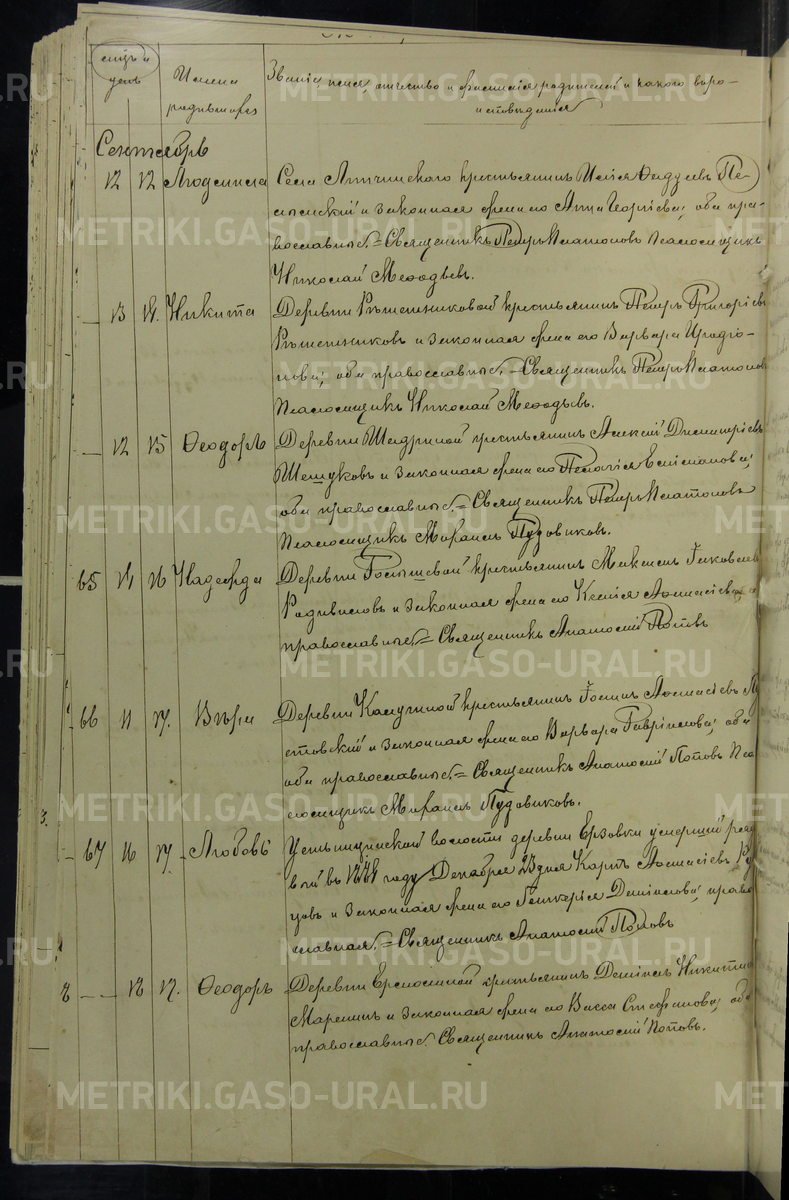 мѣсяцъ и
день
Имена
родившихся
Званіе, имя, отчество и фамилія родителей и какого вѣро-
исповѣданія
Сентябрь
12 12 Людмила Села Аттчинскаго крестьянинъ Исаія
и законная жена его Анна Георгіева; оба пра-
вославные. Священникъ Петръ Платоновъ Псаломщикъ
Николай Меѳодьевъ.
13 14. Никита Деревни Рѣшетниковой крестьянинъ Петръ Григоріевъ
Рѣшетниковъ и законная жена его Варвара Иродіо-
нова; оба православные. Священникъ Петръ Платоновъ
Псаломщикъ Николай Меѳодьевъ.
12 15 Ѳеодоръ Деревни Шадриной крестьянинъ Алексій Димитріевъ
Шешуковъ и законная жена его Пелагія
оба православные. Священникъ Петръ Платоновъ
Псаломщикъ Михаилъ Пудовиковъ.
65 14 16 Надежда Деревни крестьянинъ Максимъ Іаковлевъ
и законная жена его Ксенія Аѳанасіева
православные. Священникъ Анатолій Поповъ
66 11 17. Вѣра Деревни крестьянинъ Аѳанасіевъ
и законная жена его Варвара Гавріилова; оба
оба православные. Священникъ Анатолій Поповъ Пса-
ломщикъ Михаилъ Пудовиковъ.
67 16 17 Любовь волости деревни Ерзовки умершій
въ году Декабря 23 дня Карпъ Аѳанасіевъ
и законная жена его Гликерія Даніилова; право-
славная. Священникъ Анатолій Поповъ
8 18 17. Ѳеодоръ Деревни Ермолиной крестьянинъ Даніилъ Никитинъ
Маренинъ и законная жена его Васса Стефанова; оба
православные. Священникъ Анатолій Поповъ.
METRIKI.GASO-URAL.RU